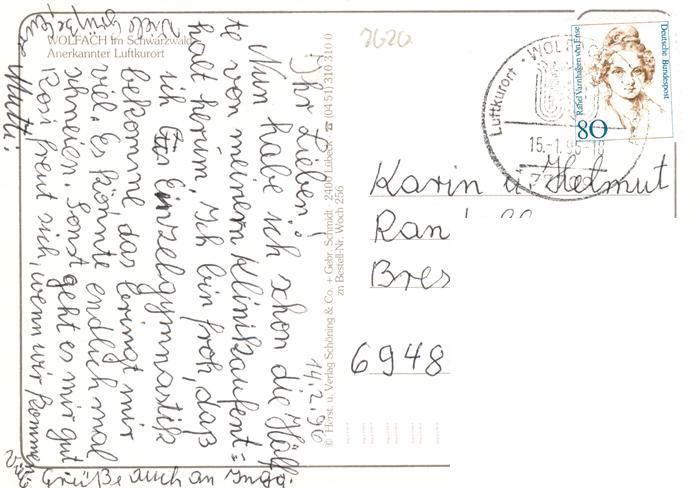 WOLFACH im Schwarzwald
Anerkannter Luftkurort
14.2.96
Ihr Lieben!
Nun habe ich schon die Hälf
te von meinem Klinikaufent=
halt herum, Ich bin froh, daß
ich Einzelgymnastik
bekomme das bringt mir
viel. Es könnte endlich mal
schneien. Sonst geht es mir gut
Rosi freut sich, wenn wir kommen
Viele Grüße auch an Inga.
Eure Mutti.
© Herst. u. Verlag Schöning & Co. + Gebr. Schmidt · 2400 Lübeck ☎ (04 51) 310 310 0
zn Bestell-Nr. Woch 256
3620
Luftkurort · WOLFACH
15.-1.95-18
Deutsche Bundespost
Rahel Varnhagen von Ense
80
Karin u. Helmut
Ran
Bres
6948